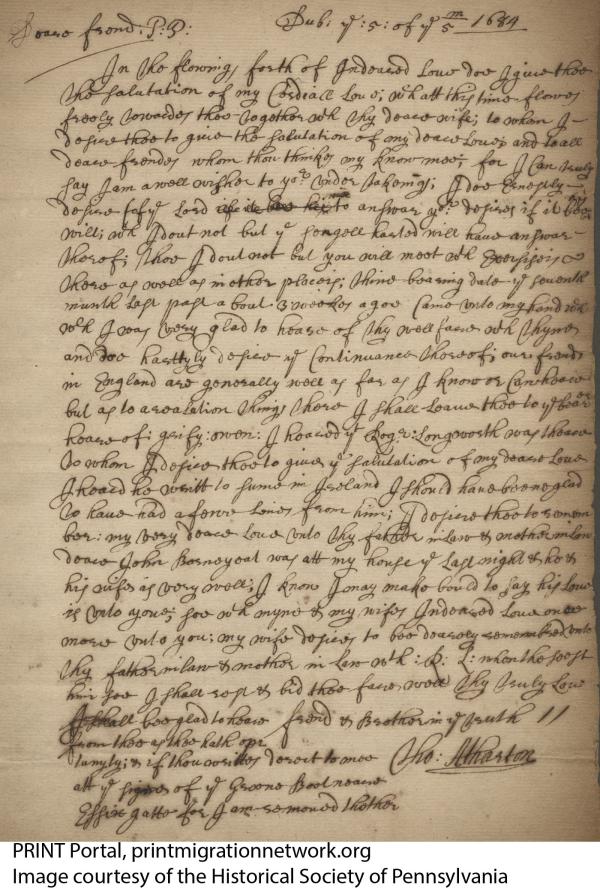 Deare frend: P:P: Dub: ye :5: of ye 5 m 1684
In the flowings forth of Indeared Love doe I give thee
the salutation of my Cordiall Love; wh att this time flowes
freely towardes thee together wh thy deare wife; to whom I
desire thee to give the salutation of my deare Love; and to all
deare frendes whom thou thinkes may know mee; for I Can truly
say I am a well wisher to yor under takeings; I doe
desire ye Lord to answar yor desires if it bee
will; wh I dout not but ye hartted will have answar
therof; thoe I dout not but you will meet wh Exersises
there as well as in other places; thine bearing date ye seventh
munth Last past a bout 3 weekes agoe Came unto my hand
wh I was very glad to heare of thy well fare wh thyne
and doe harttyly desire ye Continuance thereof; our frends
in England are generally well as far as I know or Can heare
but as to things there I shall Leave thee to ye
heare of: owen: I heared ye Roger: Longworth was theare
to whom I desire thee to give ye salutation of my deare Love
I heard he writt to sume in Ireland I should have beene glad
to have had a fewe Lines from him; I desire thee to remem
ber: my very deare Love unto thy father in Law & mother in Law
deare John Borneyeat was att my house ye Last night & he &
his wife is very well; I know I may make bould to say his Love
is unto you; soe wh myne & my wifes Indeared Love once
more unto you; my wife desires to bee dearely remembred unto
thy father in Law & mother in Law wh: : when thee seest
him soe I shall rest & bid thee fare well Thy truly Love
I shall bee glad to heare frend & Brother in ye truth
from thee as thee hath opr
tunyty; & if thou writes derect to mee Tho: Atharton
att ye signe of ye Greene neare
Essix gatte for I am removed thether
PRINT Portal, printmigrationnetwork.org
Image courtesy of the Historical Society of Pennsylvania